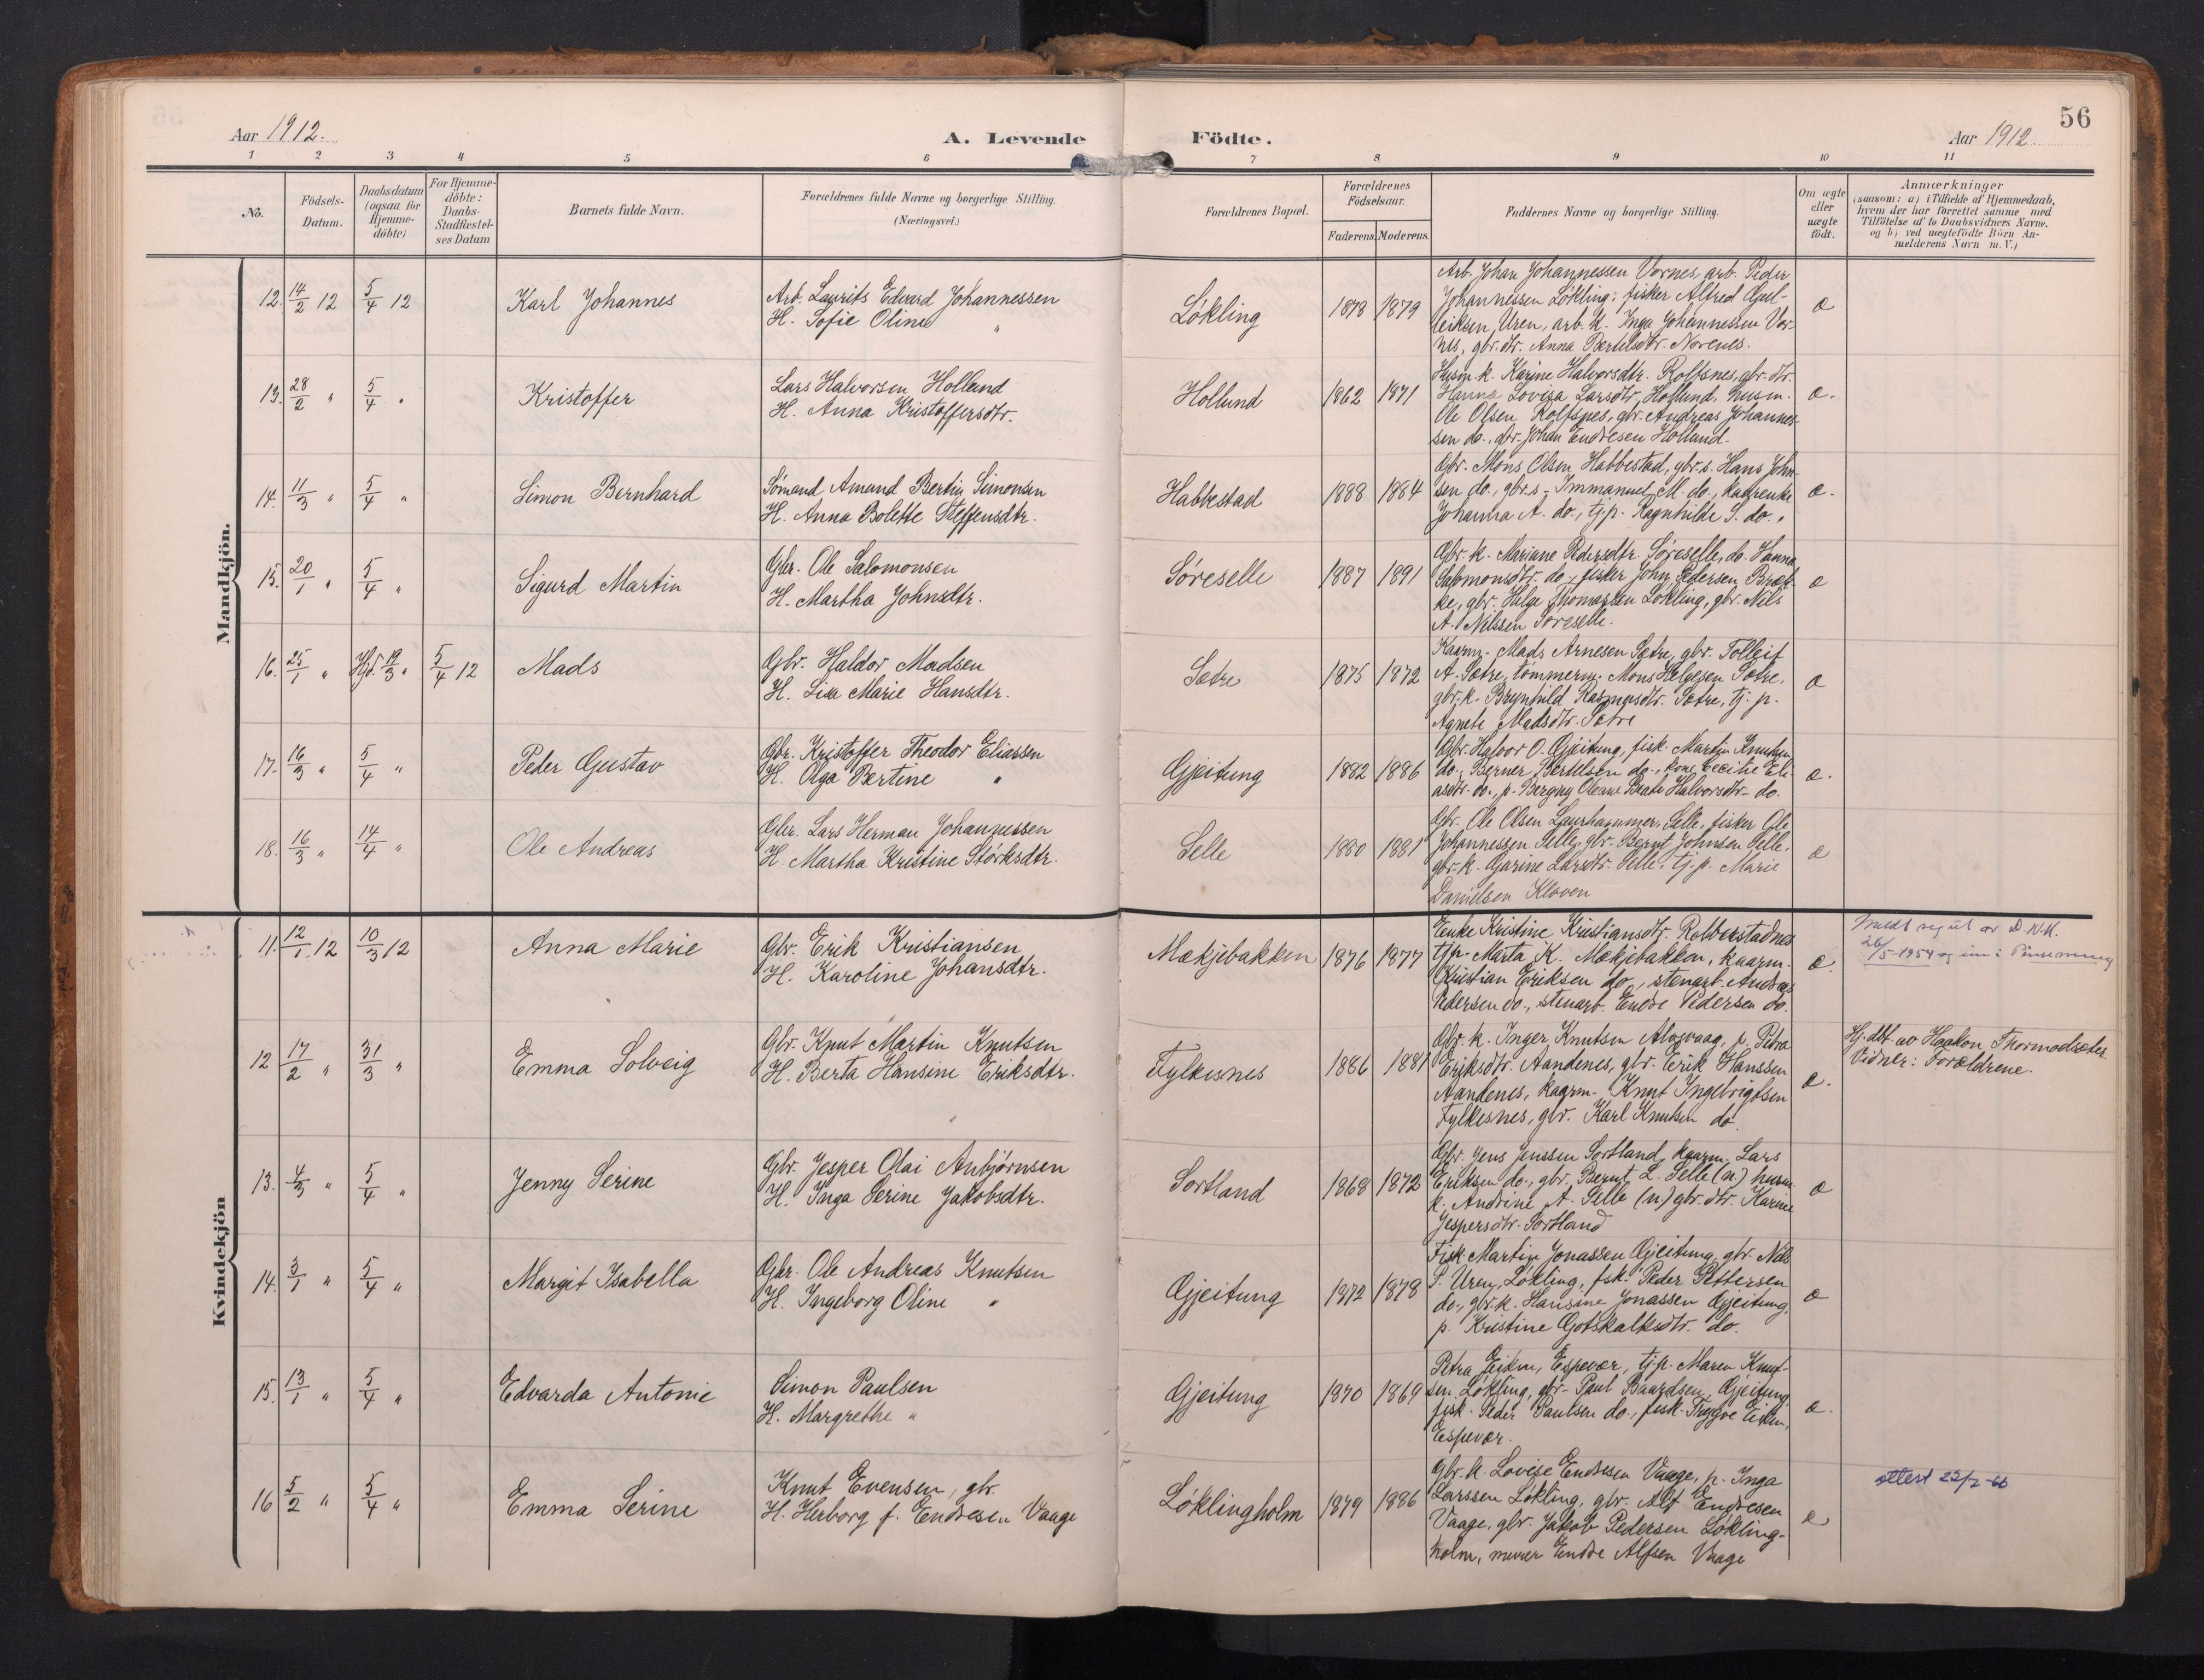 56
Aar 1912.
A. Levende Födte.
Aar 1912.
1 2 3 4 5 6 7 8 9 10 11
No.
Födsels-Datum.
Daabsdatum (ogsaa for Hjemme-döbte)
For Hjemme-döbte: Daabs-Stadfæstel-ses Datum
Barnets fulde Navn.
Forældrenes fulde Navne og borgerlige Stilling.
(Næringsvei.)
Forældrenes Bopæl.
Forældrenes Födselsaar.
Faderens. Moderens.
Faddernes Navne og borgerlige Stilling.
Om ægte eller uægte födt.
Anmærkninger
(saasom: a) i Tilfælde af Hjemmedaab,
hvem der har forrettet samme med
Tilföielse af to Daabsvidners Navne,
og b) ved uægtefödte Börn An-
melderens Navn m. V.)
Mandkjön.
12. 14/2 12 5/4 12 Karl Johannes
Arb. Laurits Edvard Johannessen
H. Sofie Oline "
Løkling 1878 1879
Arb. Johan Johannessen Vornes, arb. Peder
Johannessen Løkling; fisker Alfred
Uren, arb. k. Inga Johannessen Vor-
nes, gbr. dtr. Anna Bertelsdtr. Norenes.
æ
13. 28/2 " 5/4 " Kristoffer
Lars Halvorsen Hollund
H. Anna Kristoffersdtr.
Hollund 1862 1871
Husm. k. Karine Halvorsdtr. Rolfsnes, gbr. dtr.
Hanna Lovisa Larsdtr. Hollund, husm.
Ole Olsen Rolfsnes, gbr. Andreas Johannes-
sen do., gbr. Johan Endresen Hollund.
æ.
14. 11/3 " 5/4 " Simon Bernhard
Sömand Amund Bertin Simonsen
H. Anna Bolette Steffensdtr.
Habbestad 1888 1884
Gbr. Mons Olsen Habbestad, gbr. s. Hans John-
sen do., gbr. s. Immanuel M. do., kaarenke
Johanna A. do., tj. p. Ragnhilde S. do.
æ.
15. 20/1 " 5/4 " Sigurd Martin
Gbr. Ole Salomonsen
H. Martha Johnsdtr.
Søreselle 1887 1891
Gbr. k. Mariane Pedersdtr. Søreselle, do. Hanna
Salomonsdtr. do., fisker John Pedersen Bræk-
ke, gbr. Helge Thomassen Løkling, gbr. Nils
A. Nilssen Søreselle.
æ
16. 25/1 " Hjd. 19/3 " 5/4 12 Mads
Gbr. Haldor Madsen
H. Lisa Marie Hansdtr.
Sætre 1875 1872
Kaarm. Mads Arnesen Sætre, gbr. Tolleif
A. Sætre, tømmerm. Mons Helgesen Sætre,
gbr. k. Brynhild Rasmusdtr. Sætre, tj. p.
Agnete Madsdtr. Sætre
æ
17. 16/3 " 5/4 " Peder Gustav
Gbr. Kristoffer Theodor Eliassen
H. Olga Bertine "
Gjeitung 1882 1886
Gbr. Halvor O. Gjeitung, fisk. Martin Knutsen
do., Berner Bertelsen do., kone Cecilie Eli-
asdtr. do., p. Bergny Oleane Beate Halvorsdtr. do.
æ.
18. 16/3 " 14/4 " Ole Andreas
Gbr. Lars Herman Johannessen
H. Martha Kristine Størksdtr.
Selle 1880 1881
Gbr. Ole Olsen Laurhammer, Selle, fisker Ole
Johannessen Selle, gbr. Bernt Johnsen Selle,
gbr. k. Gjarine Larsdtr. Selle, tj. p. Marie
Danielsen Kloven
æ
Kvindekjön
11. 12/1 12 10/3 12 Anna Marie
Gbr. Erik Kristiansen
H. Karoline Johansdtr.
Mækjebakken 1876 1877
Enke Kristine Kristiansdtr. Rolberstadnes
tj. p. Marta K. Mækjebakken, kaarm.
Kristian Eriksen do., stenarb. Andreas
Pedersen do., stenarb. Endre Pedersen do.
æ.
Meldt seg ut av D.N.K.
26/5-1954 og inn i Pinsemenig
12 17/2 " 31/3 " Emma Solveig
Gbr. Knut Martin Knutsen
H. Berta Hansine Eriksdtr.
Fylkesnes 1886 1881
Gbr. k. Inger Knutsen Alvsvaag, p. Petra
Eriksdtr. Aandenes, gbr. Erik Hanssen
Aandenes, kaarm. Knut Ingebrigtsen
Fylkesnes, gbr. Karl Knutsen do.
æ.
Hj. dbt. av Haakon Thormodsæter.
Vidner: Forældrene.
13. 4/3 " 5/4 " Jenny Serine
Gbr. Jesper Olai Anbjørnsen
H. Inga Serine Jakobsdtr.
Sortland 1868 1872
Gbr. Jens Jenssen Sortland, kaarm. Lars
Eriksen do., gbr. Bernt L. Selle (n) husm.
k. Andrine A. Selle (n) gbr. dtr. Karine
Jespersdtr. Sortland
æ
14. 3/1 " 5/4 " Margit Isabella
Gbr. Ole Andreas Knutsen
H. Ingeborg Oline "
Gjeitung 1872 1878
Fisk. Martin Jonassen Gjeitung, gbr. Nils
P. Uren, Løkling, fsk. Peder Pettersen
do., gbr. k. Hansine Jonassen Gjeitung,
p. Kristine Gotskalksdtr. do.
æ
15. 13/1 " 5/4 " Edvarda Antonie
Simon Paulsen
H. Margrethe "
Gjeitung 1870 1869
Petra Eiken, Espevær, tj. p. Maren Knut-
sen Løkling, gbr. Paul Baardsen, Gjeitung
fisk. Peder Paulsen do., fisk. Trygve Eiken,
Espevær.
æ.
16 5/2 " 5/4 " Emma Serine
Knut Evensen, gbr.
H. Herborg f. Endresen Vaage
Løklingholm 1879 1886
Gbr. k. Lovise Endresen Vaage, p. Inga
Larssen Løkling, gbr. Alf Endresen
Vaage, gbr. Jakob Pedersen Løkling-
holm, murer Endre Alfsen Vaage
æ
attest 22/2-66